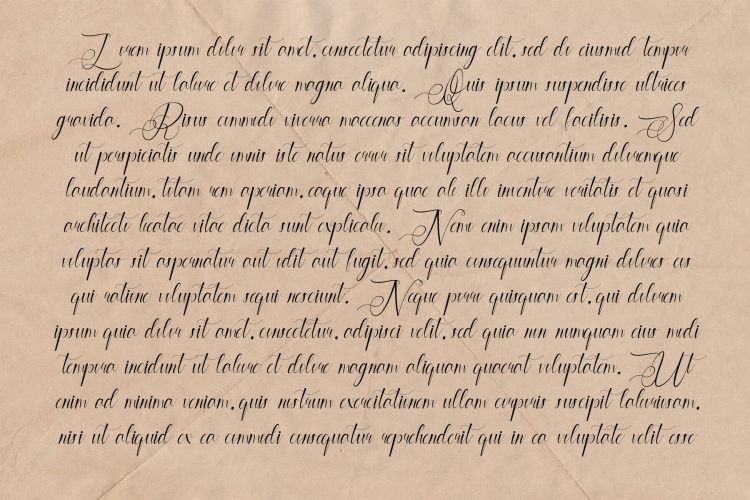 Lorem ipsum dolor sit amet, consectetur adipiscing elit, sed do eiusmod tempor
incididunt ut labore et dolore magna aliqua. Quis ipsum suspendisse ultrices
gravida. Risus commodo viverra maecenas accumsan lacus vel facilisis. Sed
ut perspiciatis unde omnis iste natus error sit voluptatem accusantium doloremque
laudantium, totam rem aperiam, eaque ipsa quae ab illo inventore veritatis et quasi
architecto beatae vitae dicta sunt explicabo. Nemo enim ipsam voluptatem quia
voluptas sit aspernatur aut odit aut fugit, sed quia consequuntur magni dolores eos
qui ratione voluptatem sequi nesciunt. Neque porro quisquam est, qui dolorem
ipsum quia dolor sit amet, consectetur, adipisci velit, sed quia non numquam eius modi
tempora incidunt ut labore et dolore magnam aliquam quaerat voluptatem. Ut
enim ad minima veniam, quis nostrum exercitationem ullam corporis suscipit laboriosam,
nisi ut aliquid ex ea commodi consequatur reprehenderit qui in ea voluptate velit esse